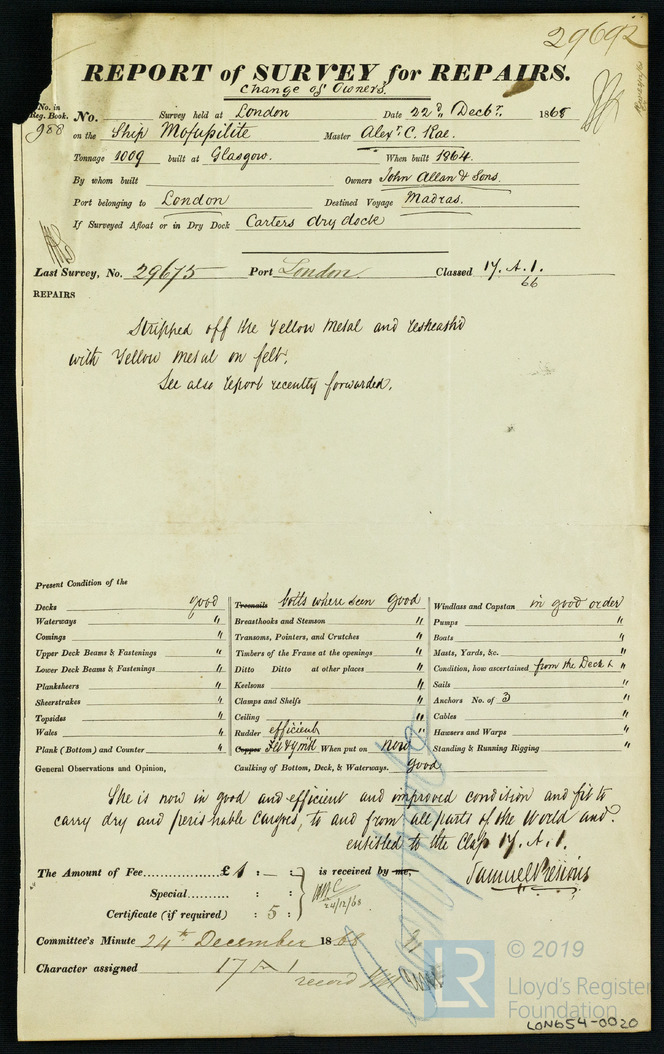 29692
REPORT of SURVEY for REPAIRS.
Change of Owners.
No. in Reg. Book. 988
No. Survey held at London Date 22d Decbr. 1868
on the Ship Mofussilite Master Alexr. C. Rae.
Tonnage 1009 built at Glasgow. When built 1864.
By whom built Owners John Allan & Sons.
Port belonging to London Destined Voyage Madras.
If Surveyed Afloat or in Dry Dock Carters dry dock
Last Survey, No. 29675 Port London Classed 17. A. 1.
66
REPAIRS
Stripped off the Yellow Metal and resheath'd
with Yellow Metal on felt.
See also report recently forwarded.
Present Condition of the
Decks good
Waterways "
Comings "
Upper Deck Beams & Fastenings "
Lower Deck Beams & Fastenings "
Planksheers "
Sheerstrakes "
Topsides "
Wales "
Plank (Bottom) and Counter "
General Observations and Opinion,
Treenails bolts where seen good
Breasthooks and Stemson "
Transoms, Pointers, and Crutches "
Timbers of the Frame at the openings "
Ditto Ditto at other places "
Keelsons "
Clamps and Shelfs "
Ceiling "
Rudder efficient
Copper Felt & ym'tl When put on now
Caulking of Bottom, Deck, & Waterways. good
Windlass and Capstan in good order
Pumps "
Boats "
Masts, Yards, &c. "
Condition, how ascertained from the Deck & "
Sails "
Anchors No. of 3 "
Cables "
Hawsers and Warps "
Standing & Running Rigging "
She is now in good and efficient and improved condition and fit to
carry dry and perishable Cargoes, to and from all parts of the World and
entitled to the Class 17. A. 1.
The Amount of Fee........... £ 1 : – : is received by me,
Special............ : :
24/12/68
Certificate (if required) : 5 :
Samuel Pretious
Committee's Minute 24th December 1868
Character assigned 17 A 1
record
LR © 2019
Lloyd's Register
Foundation
LON654-0020